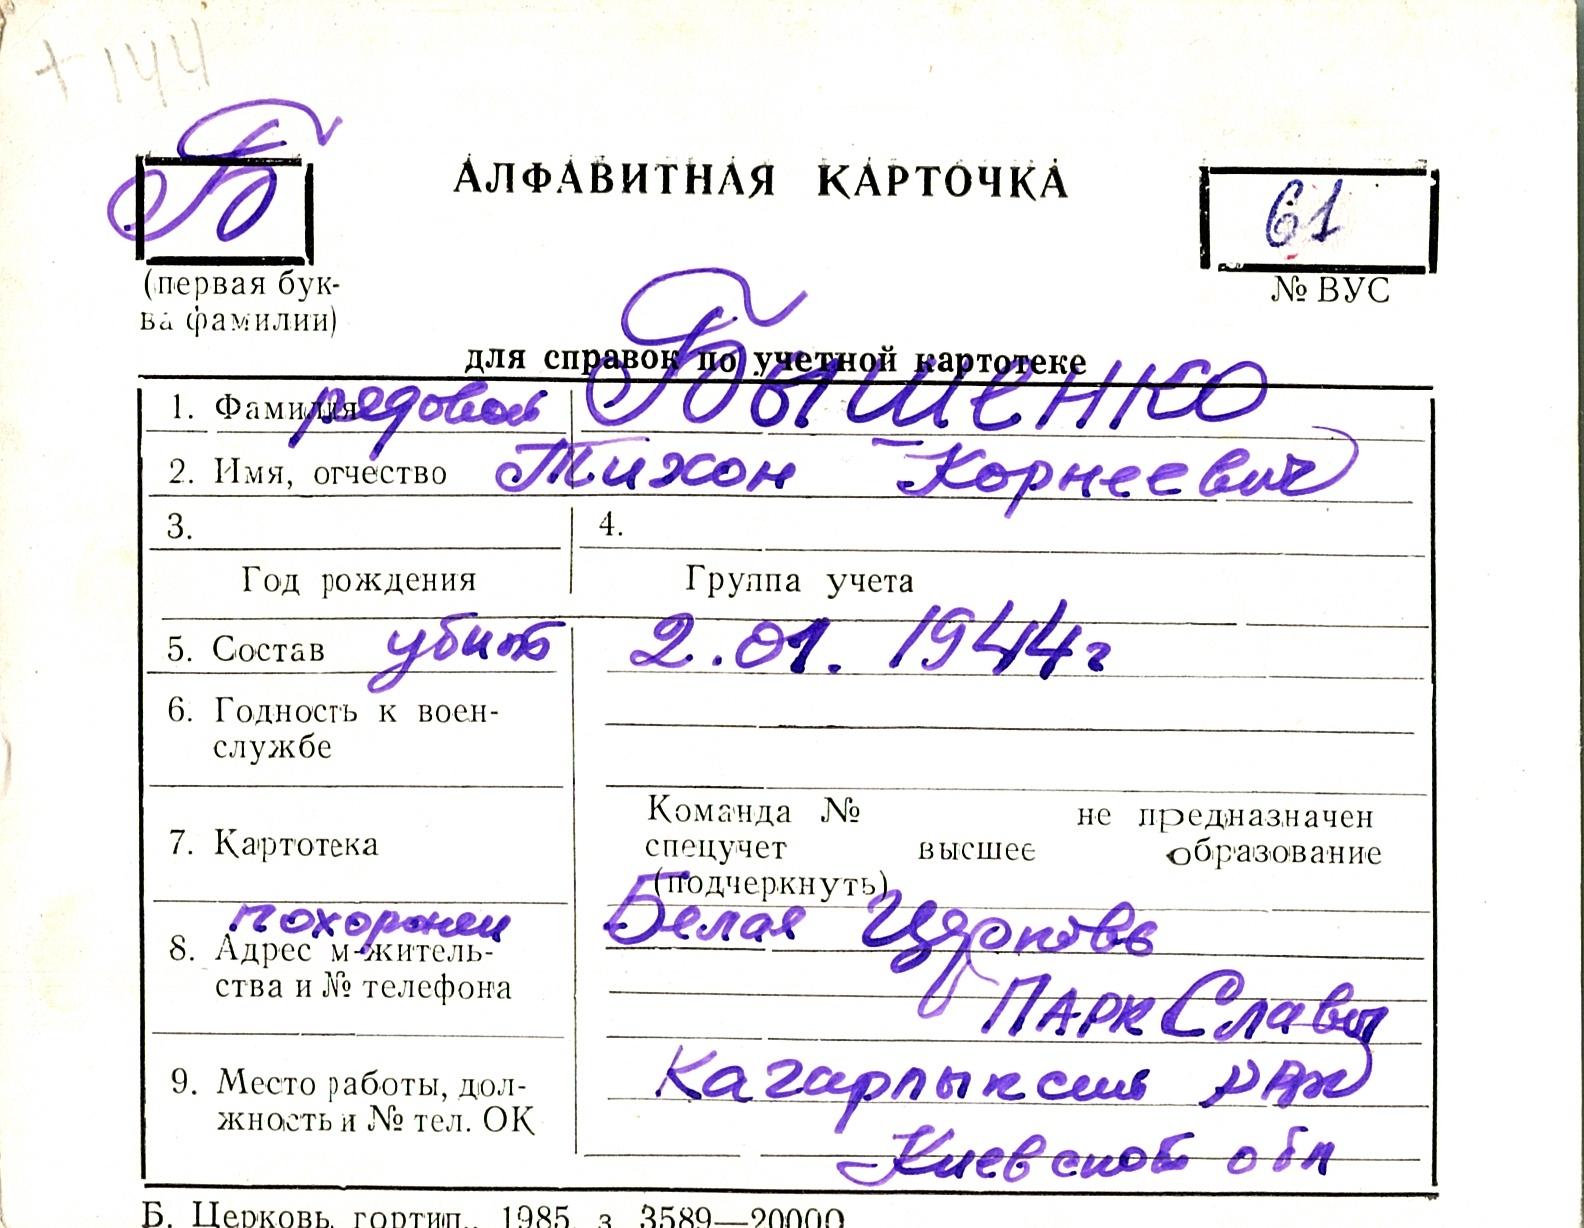 +144
Б
АЛФАВИТНАЯ КАРТОЧКА
61
(первая бук-
ва фамилии)
№ ВУС
для справок по учетной картотеке
1. Фамилия рядовой Бышенко
2. Имя, отчество Тихон Корнеевич
3. 4.
Год рождения Группа учета
5. Состав убит 2.01.1944г
6. Годность к воен-
службе
Команда № не предназначен
7. Картотека спецучет высшее образование
(подчеркнуть)
похоронен Белая Церковь
8. Адрес м-житель-
ства и № телефона
ПАРК Славы
9. Место работы, дол-
жность и № тел. ОК
Кагарлыкский
Киевской обл
Б. Церковь, гортип., 1985, з. 3589—20000